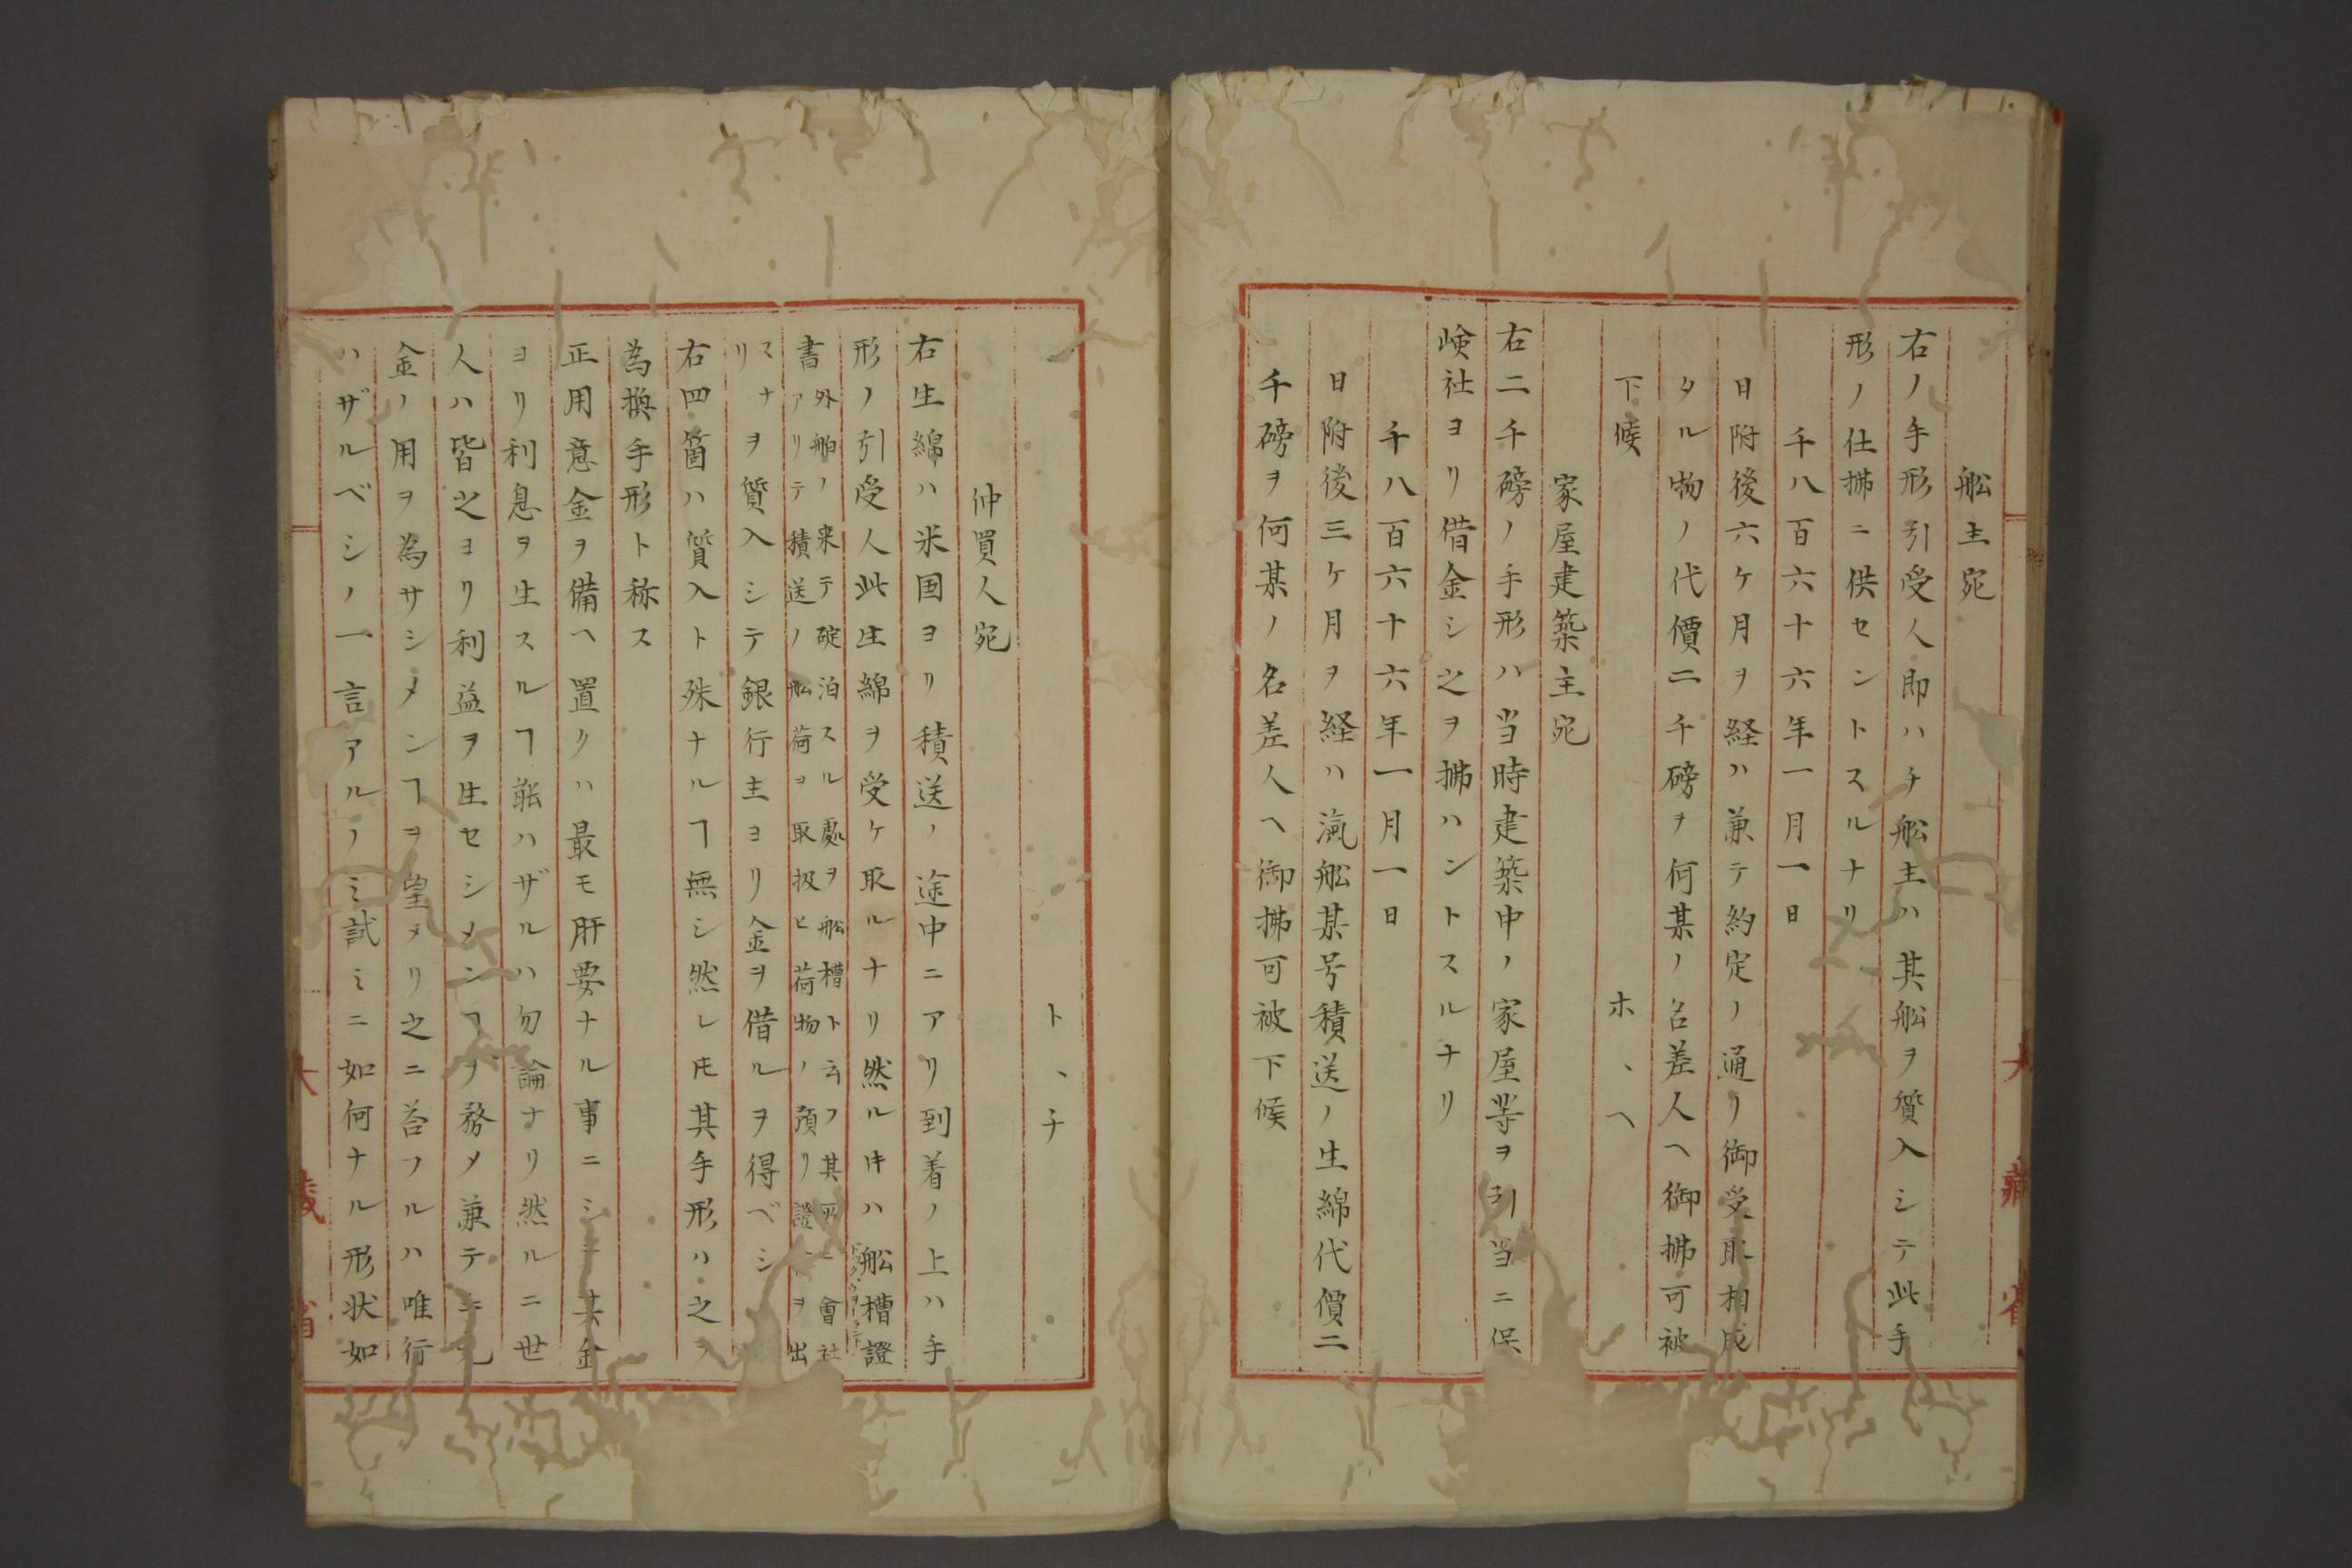 舩主宛
右ノ手形引受人即ハチ舩主ハ其舩ヲ質入シテ此手
形ノ仕拂ニ供セントスルナリ
千八百六十六年一月一日
日附後六ケ月ヲ経ハ兼テ約定ノ通リ御受取相成
タル物ノ代價二千磅ヲ何某ノ名差人ヘ御拂可被
下候
ホ、ヘ
家屋建築主宛
右二千磅ノ手形ハ当時建築中ノ家屋等ヲ引当ニ保
嶮社ヨリ借金シ之ヲ拂ハントスルナリ
千八百六十六年一月一日
日附後三ケ月ヲ経ハ滊舩某号積送ノ生綿代價二
千磅ヲ何某ノ名差人ヘ御拂可被下候
ト、チ
仲買人宛
右生綿ハ米国ヨリ積送ノ途中ニアリ到着ノ上ハ手
形ノ引受人此生綿ヲ受ケ取ルナリ然ルヰハ舩槽證
書
外舶ノ来テ碇泊スル處ヲ舩槽ト云フ其所ニ會社
アリテ積送ノ舩荷ヲ取扱ヒ荷物ノ預リ證ヲ出
スナ
リ
ヲ質入シテ銀行主ヨリ金ヲ借ルヲ得ベシ
右四箇ハ質入ト殊ナルヿ無シ然レ𪜈其手形ハ之ヲ
為換手形ト称ス
正用意金ヲ備ヘ置クハ最モ肝要ナル事ニシテ其金
ヨリ利息ヲ生スルヿ能ハザルハ勿論ナリ然ルニ世
人ハ皆之ヨリ利益ヲ生セシメンヿヲ務メ兼テニ
金ノ用ヲ為サシメンヿヲ望メリ之ニ荅フルハ唯行
ハザルベシノ一言アルノミ試ミニ如何ナル形状如
大藏省
大藏省